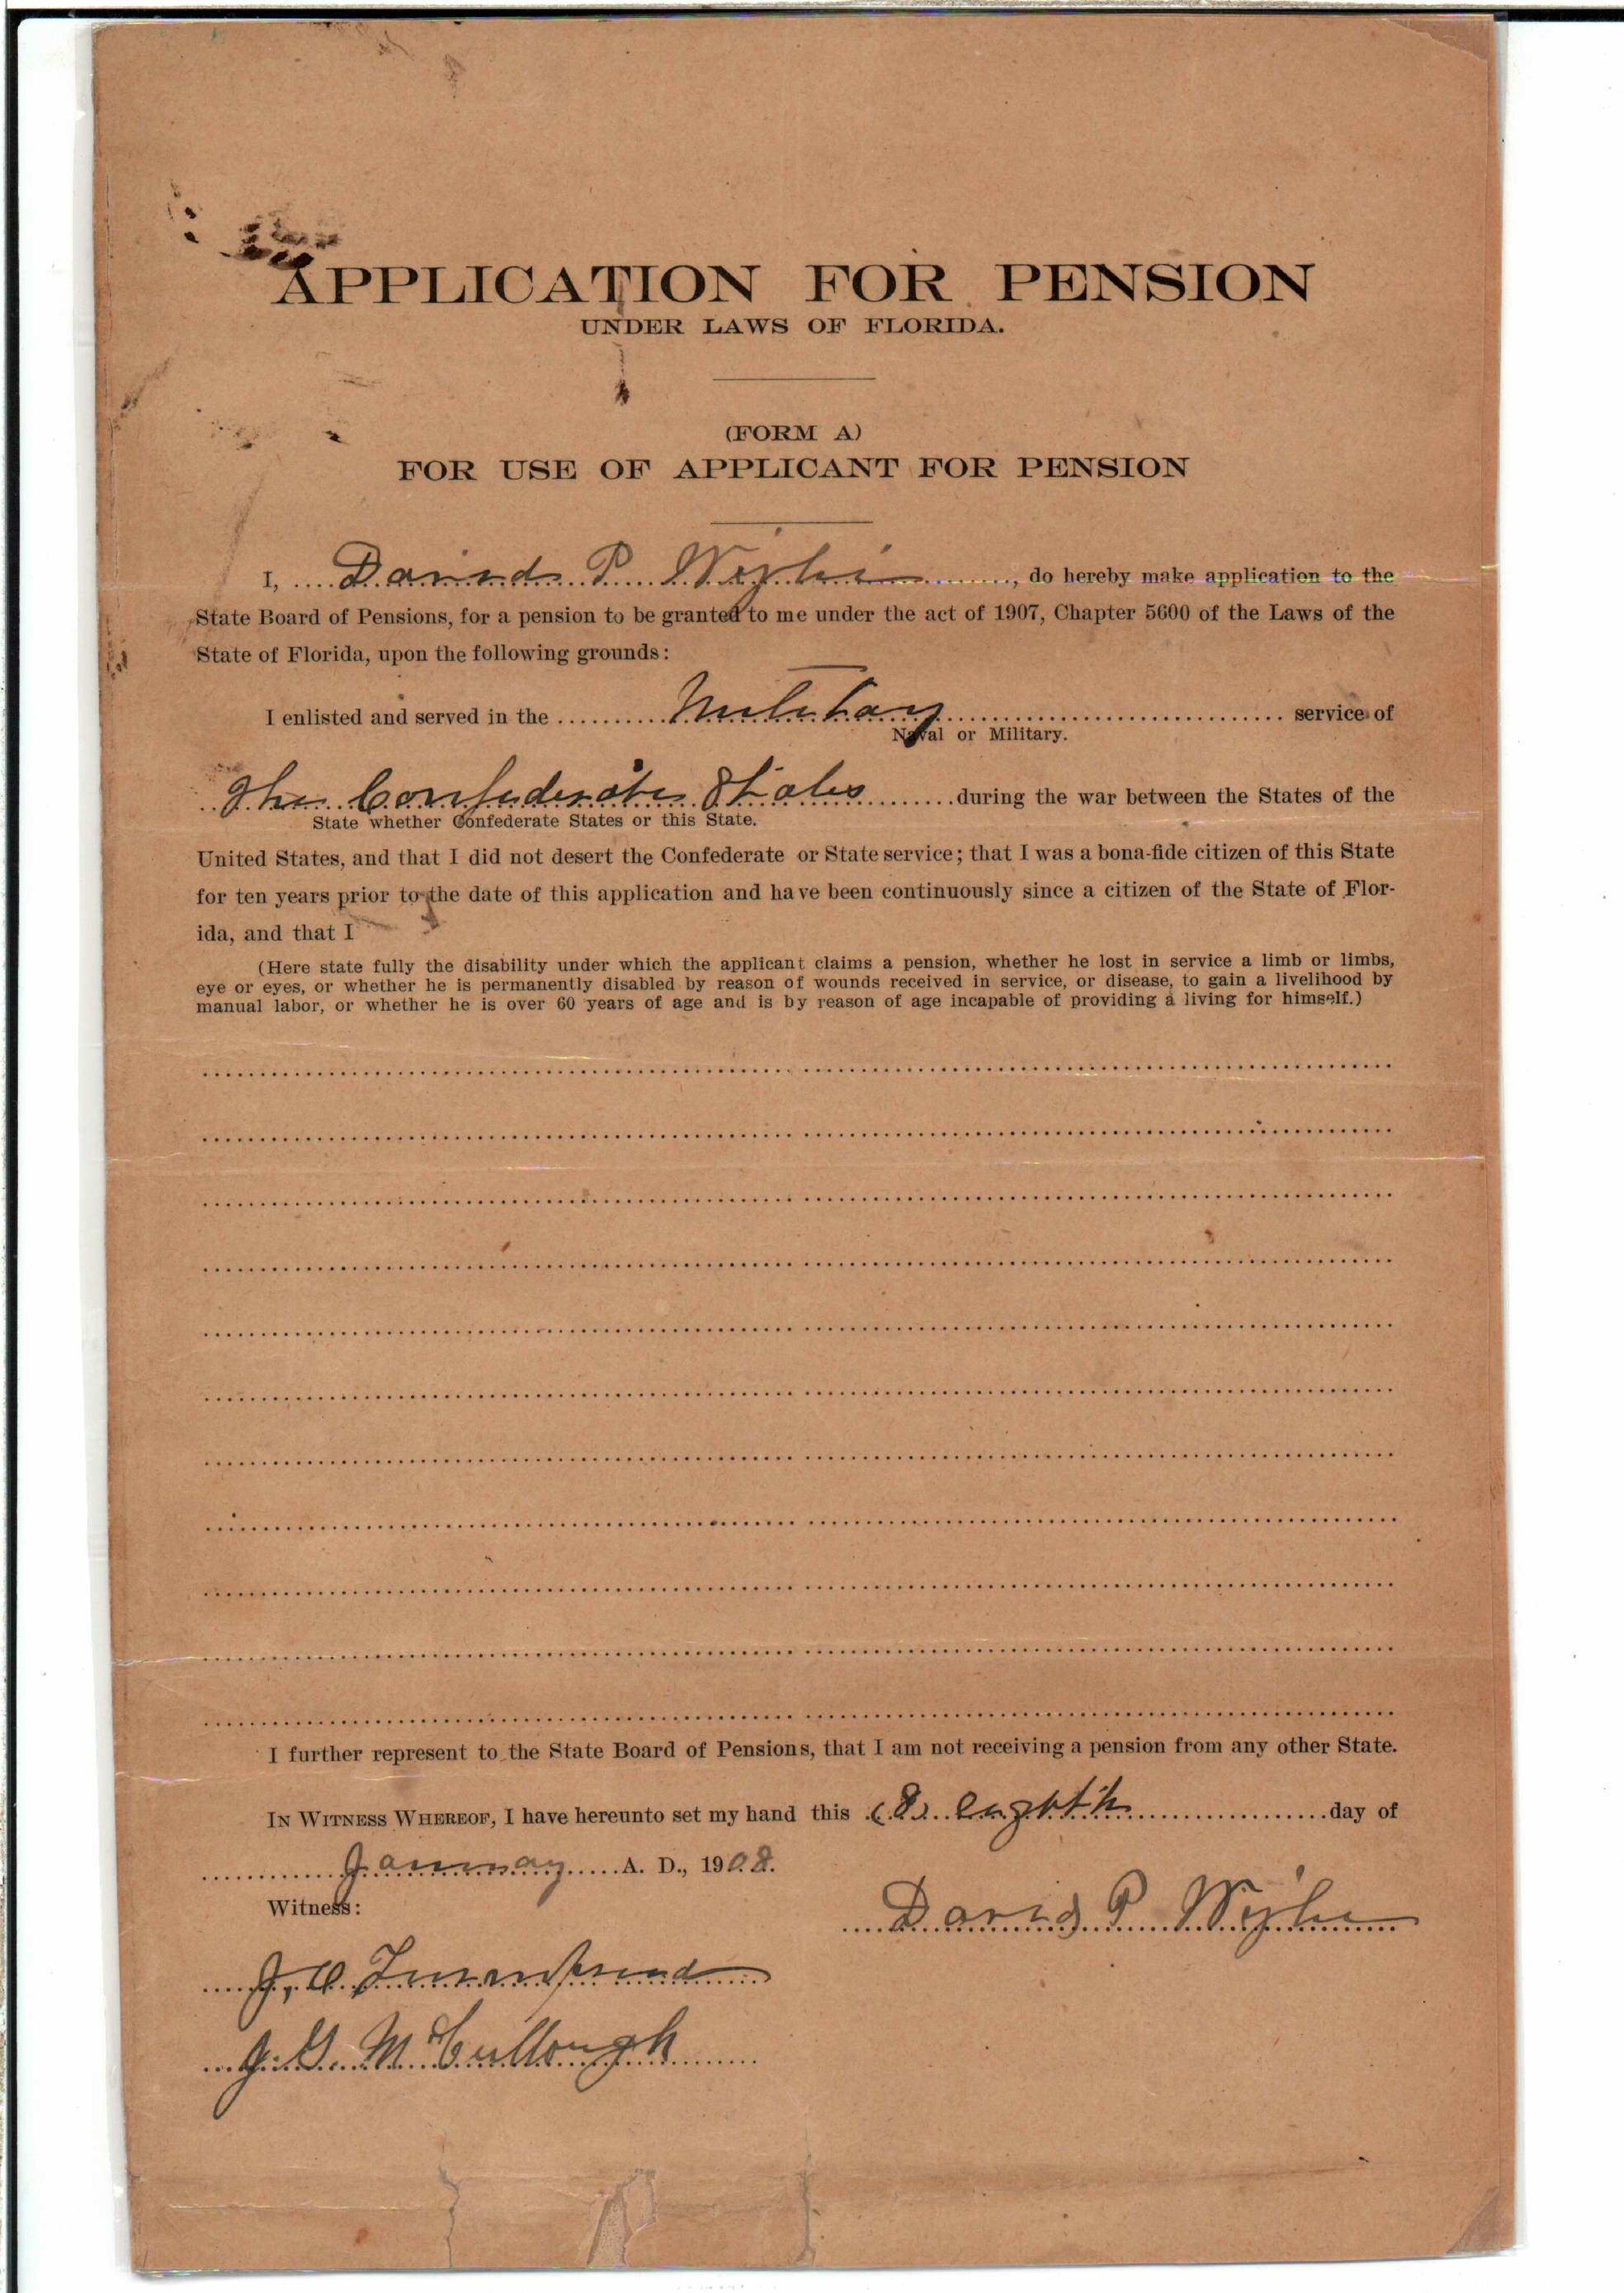 APPLICATION FOR PENSION
UNDER LAWS OF FLORIDA.
(FORM A)
FOR USE OF APPLICANT FOR PENSION
I, David P. Wylie, do hereby make application to the
State Board of Pensions, for a pension to be granted to me under the act of 1907, Chapter 5600 of the Laws of the
State of Florida, upon the following grounds:
I enlisted and served in the Military service of
Naval or Military.
The Confederate States during the war between the States of the
State whether Confederate States or this State.
United States, and that I did not desert the Confederate or State service; that I was a bona-fide citizen of this State
for ten years prior to the date of this application and have been continuously since a citizen of the State of Flor-
ida, and that I
(Here state fully the disability under which the applicant claims a pension, whether he lost in service a limb or limbs,
eye or eyes, or whether he is permanently disabled by reason of wounds received in service, or disease, to gain a livelihood by
manual labor, or whether he is over 60 years of age and is by reason of age incapable of providing a living for himself.)
I further represent to the State Board of Pensions, that I am not receiving a pension from any other State.
IN WITNESS WHEREOF, I have hereunto set my hand this (8) eighth day of
January A. D., 1908.
Witness:
David P. Wylie
J. G. McCullough